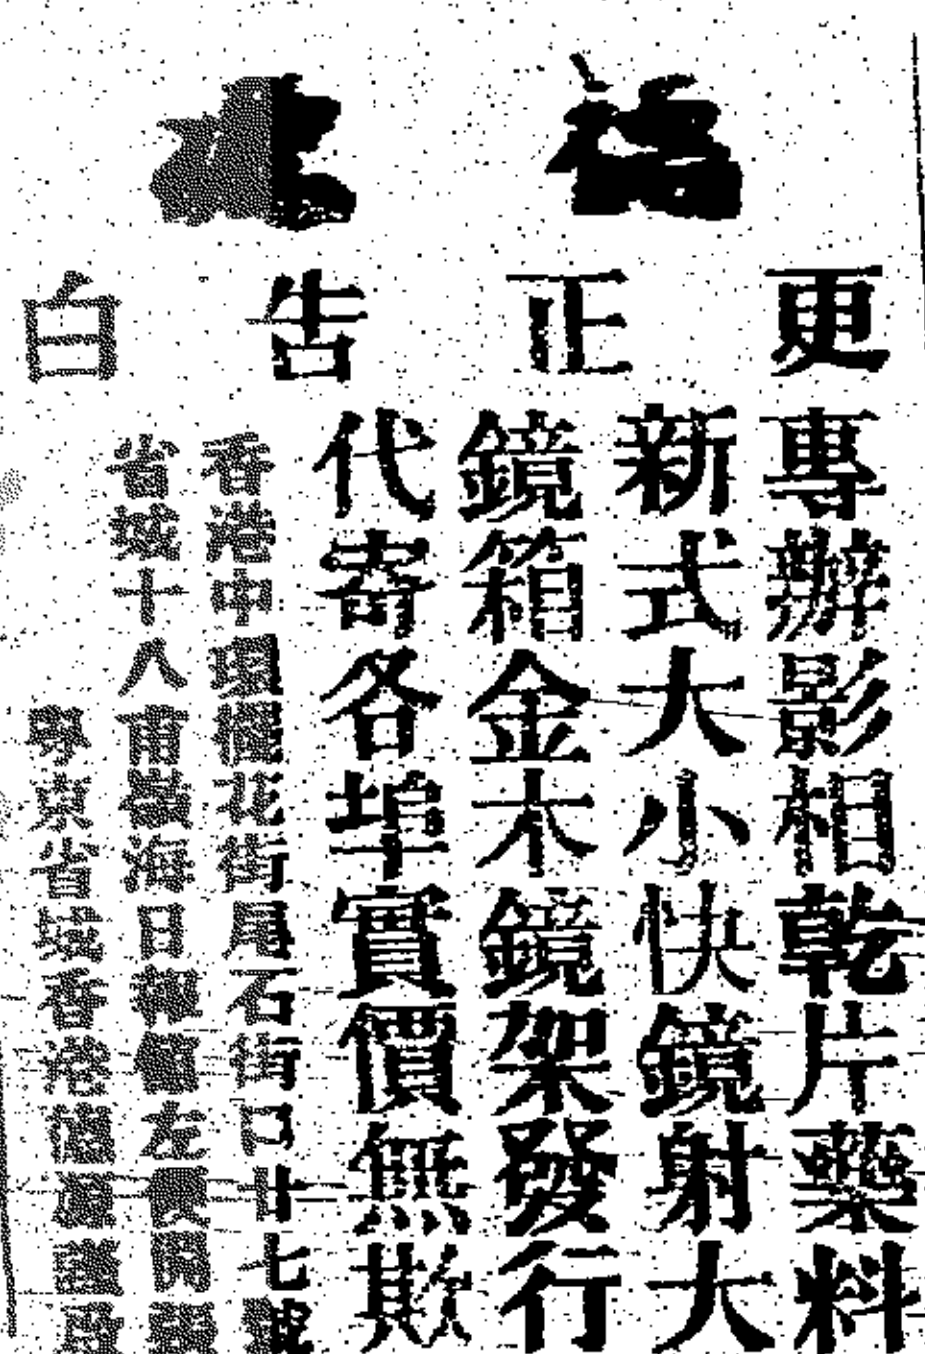 更正告白
專辦影相乾片藥料
新式大小快鏡射大
鏡箱金木鏡架發行
代寄各埠實價無欺
香港中環擺花街尾石街 廿七號
省城十八甫嶺海日報舘左便開設
省城香港